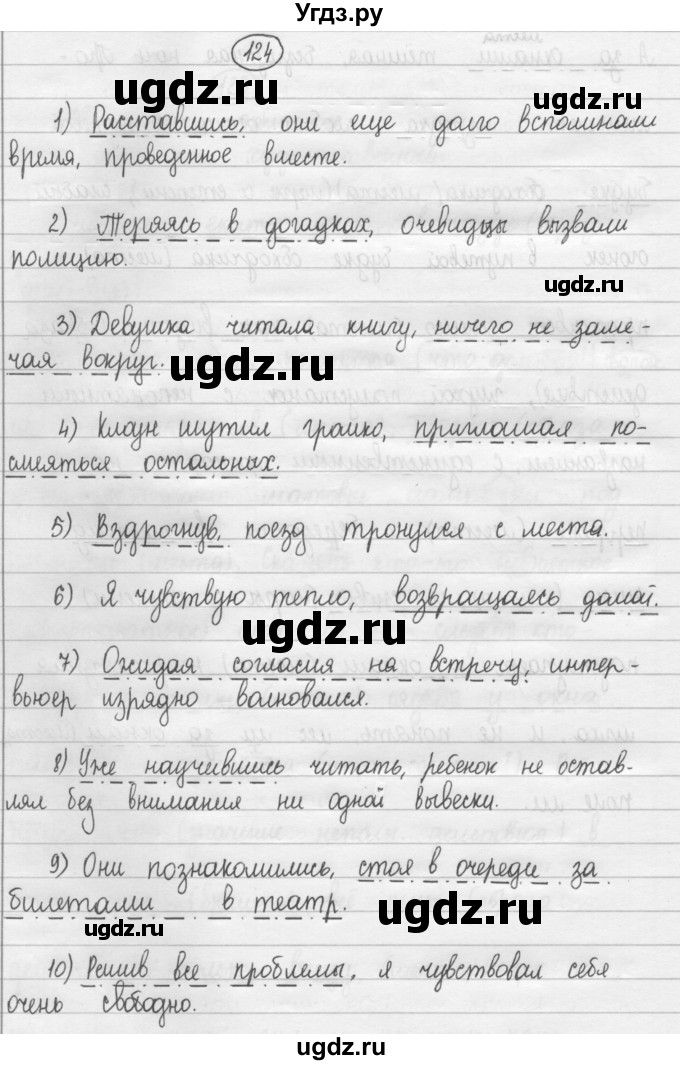 Угдз.ру
124
ugdz.ru
ugdz.ru
1) Расставшись, они еще долго вспоминали
время, проведенное вместе.
ugdz.ru
2) Теряясь в догадках, очевидцы вызвали
полицию.
ugdz.ru
3) Девушка читала книгу, ничего не заме-
чая вокруг.
ugdz.ru
4) Клоун шутил громко, приглашая по-
смеяться остальных.
ugdz.ru
5) Вздрогнув, поезд тронулся с места.
6) Я чувствую тепло, возвращаясь домой.
ugdz.ru
7) Ожидая согласия на встречу, интер-
вьюер изрядно волновался.
ugdz.ru
8) Уже научившись читать, ребенок не остав-
лял без внимания ни одной вывески.
9) Они познакомились, стоя в очереди за
билетами в театр.
ugdz.ru
ugdz.ru
10) Решив все проблемы, я чувствовал себя
очень свободно.
ugdz.ru